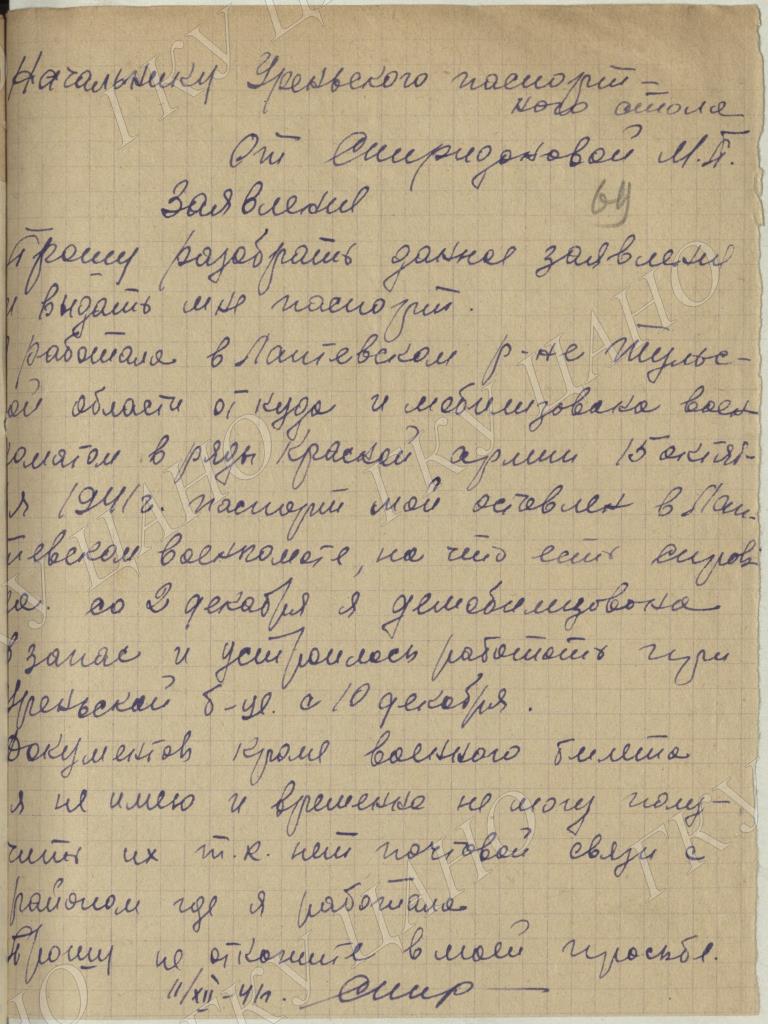 Начальнику Уреньского паспорт-
ного стола
От Спиридоновой М.П.
Заявление
64
Прошу разобрать данное заявление
и выдать мне паспорт.
работала в Лаптевском р-не Тульс-
ой области от куда и мобилизована воен
коматом в ряды Красной армии 15 октяб-
я 1941 г. паспорт мой оставлен в Лап-
тевском военкомате, на что есть справ
ка. со 2 декабря я демобилизована
в запас и устроилась работать при
Уреньской б-це. с 10 декабря.
Документов кроме военного билета
я не имею и временно не могу полу-
чить их т.к. нет почтовой связи с
районом где я работала
Прошу не откажите в моей просьбе.
11/XII-41 г. Спир
ГКУ ЦАНО